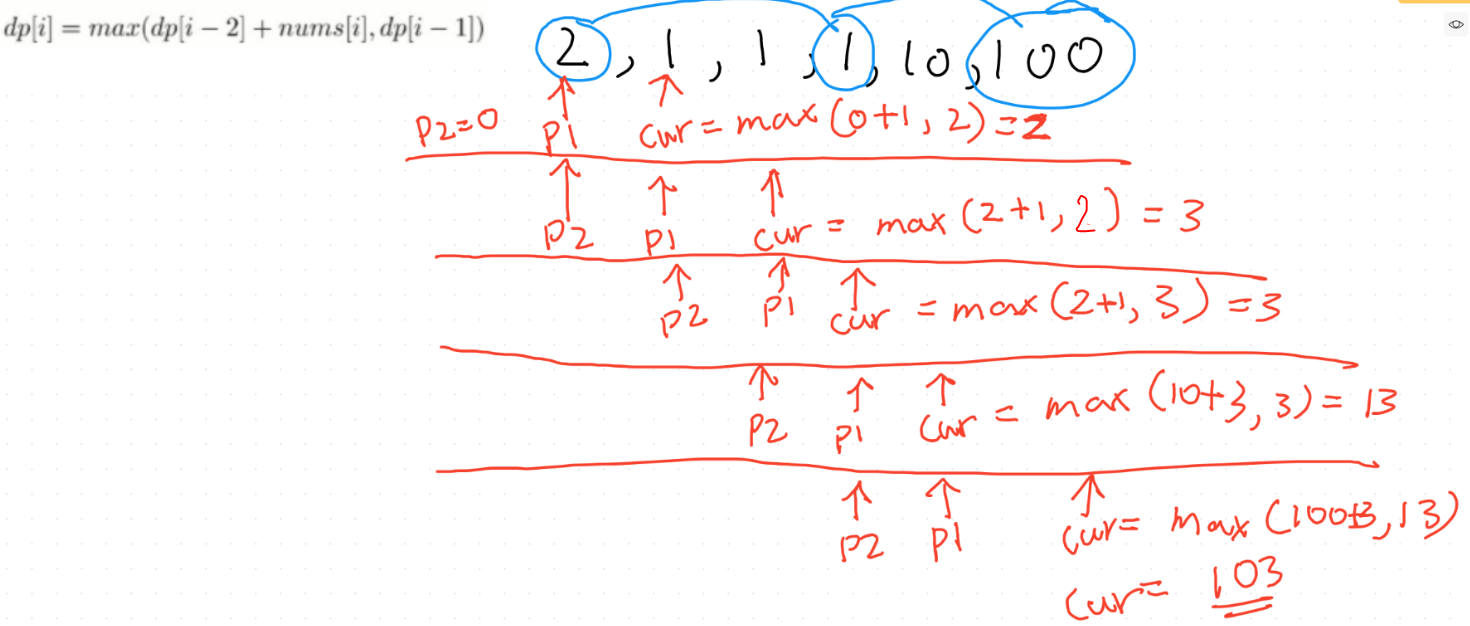 dp[i] = max(dp[i − 2] + nums[i], dp[i − 1])
2, 1, 1, 1, 10, 100
P2=0 P1 cur = max (0+1, 2) = 2
P2 P1 cur = max (2+1, 2) = 3
P2 P1 cur = max (2+1, 3) = 3
P2 P1 cur = max (10+3, 3) = 13
P2 P1 cur = max (100+3, 13)
cur = 103